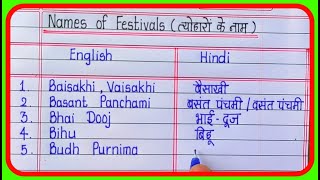 Names of Festivals (त्योहारों के नाम)
English Hindi
1. Baisakhi, Vaisakhi वैसाखी
2. Basant Panchami बसंत पंचमी / वसंत पंचमी
3. Bhai Dooj भाई-दूज
4. Bihu बिहू
5. Budh Purnima